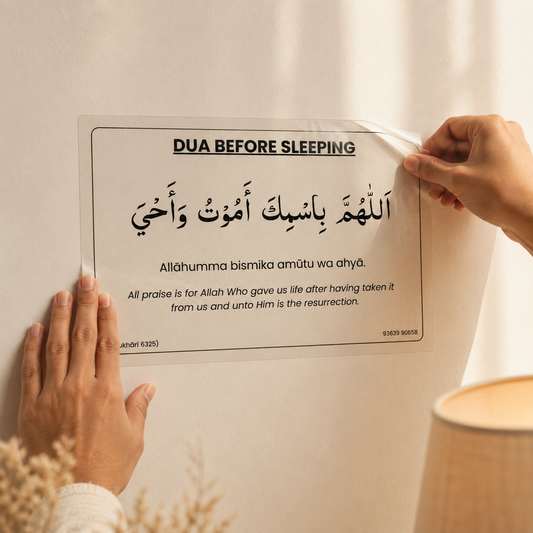 DUA BEFORE SLEEPING
اَللّٰهُمَّ بِاسْمِكَ أَمُوْتُ وَأَحْيَ
Allāhumma bismika amūtu wa ahyā.
All praise is for Allah Who gave us life after having taken it
from us and unto Him is the resurrection.
ukhāri 6325)
93639 90658